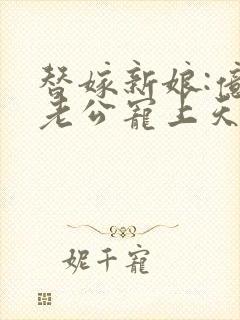 替嫁新娘:億
老公寵上天
妮千寵